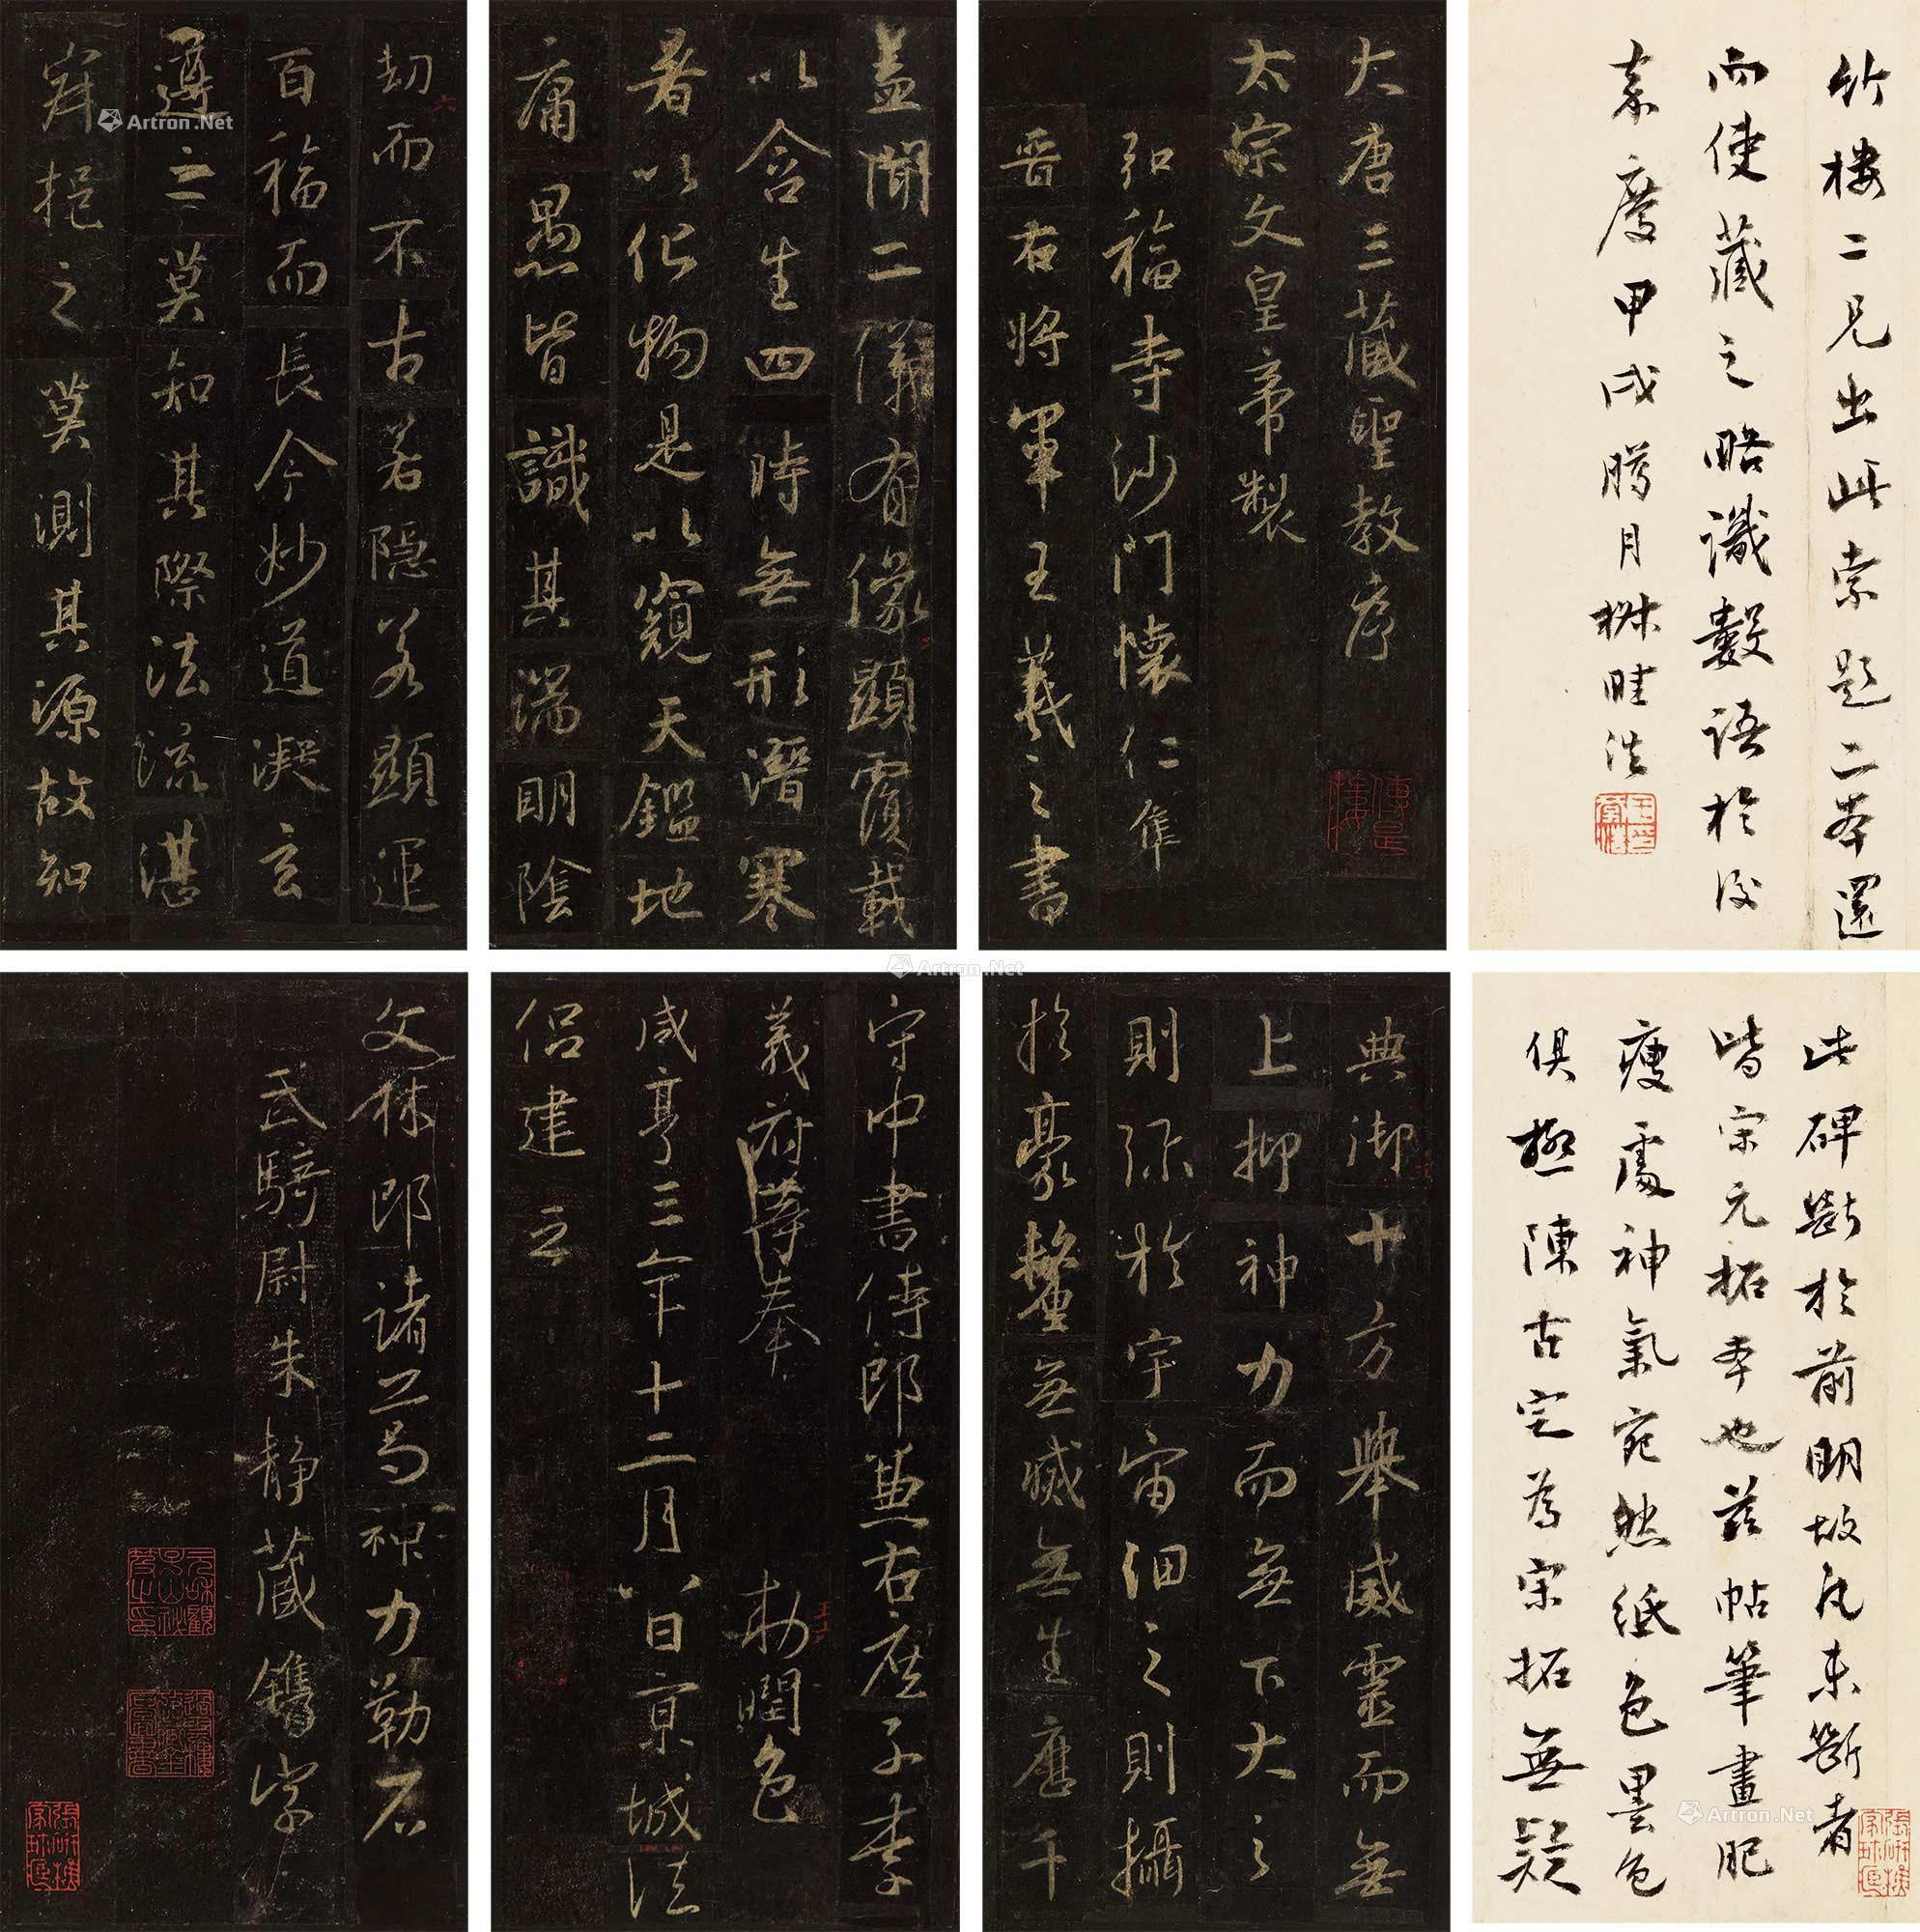 竹樓二兄出此索題二本還
而使藏之略識數語於後
嘉慶甲戌臘月楙畦浩
大唐三藏聖教序
太宗文皇帝製
弘福寺沙門懷仁集
晉右將軍王羲之書
蓋聞二儀有像顯覆載
以含生四時無形潛寒
者以化物是以窺天鑑地
庸愚皆識其端明陰
劫而不古若隱若顯運
百福而長今妙道凝玄
遵之莫知其際法流湛
寂挹之莫測其源故知
此碑斷於前明故凡未斷者
皆宋元拓本也茲帖筆畫肥
瘦處神氣宛然紙色墨色
俱極陳古定為宋拓無疑
典御十方舉威靈而無
上抑神力而無下大之
則彌於宇宙細之則攝
於豪釐無滅無生歷千
守中書侍郎兼右庶子李
義府等奉 敕潤色
咸亨三年十二月八日京城法
侶建立
文林郎諸葛神力勒石
武騎尉朱靜藏鐫字
傳是樓
Artron.Net
Artron.Net
Artron.Net